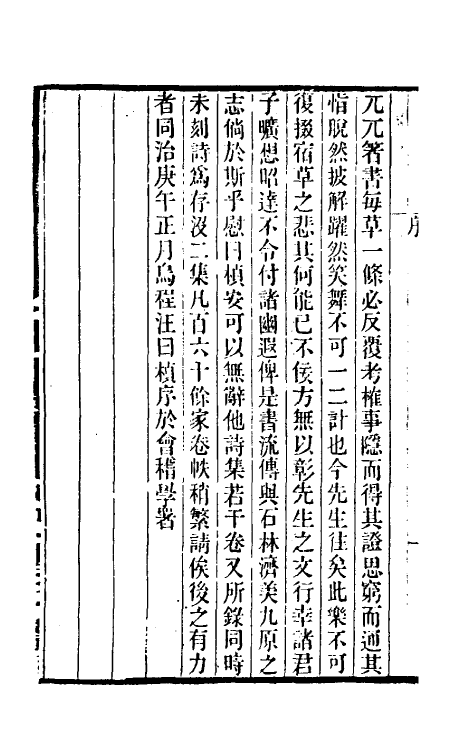 序
兀兀箸書每草一條必反覆考榷事隱而得其證思窮而通其
恉脫然披解躍然笑舞不可一二計也今先生往矣此樂不可
復掇宿草之悲其何能已不佞方無以彰先生之文行幸諸君
子曠想昭達不令付諸幽遐俾是書流傳與石林濟美九原之
志倘於斯乎慰曰楨安可以無辭他詩集若干卷又所錄同時
未刻詩爲存沒二集凡百六十餘家卷帙稍繁請俟後之有力
者同治庚午正月烏程汪曰楨序於會稽學署